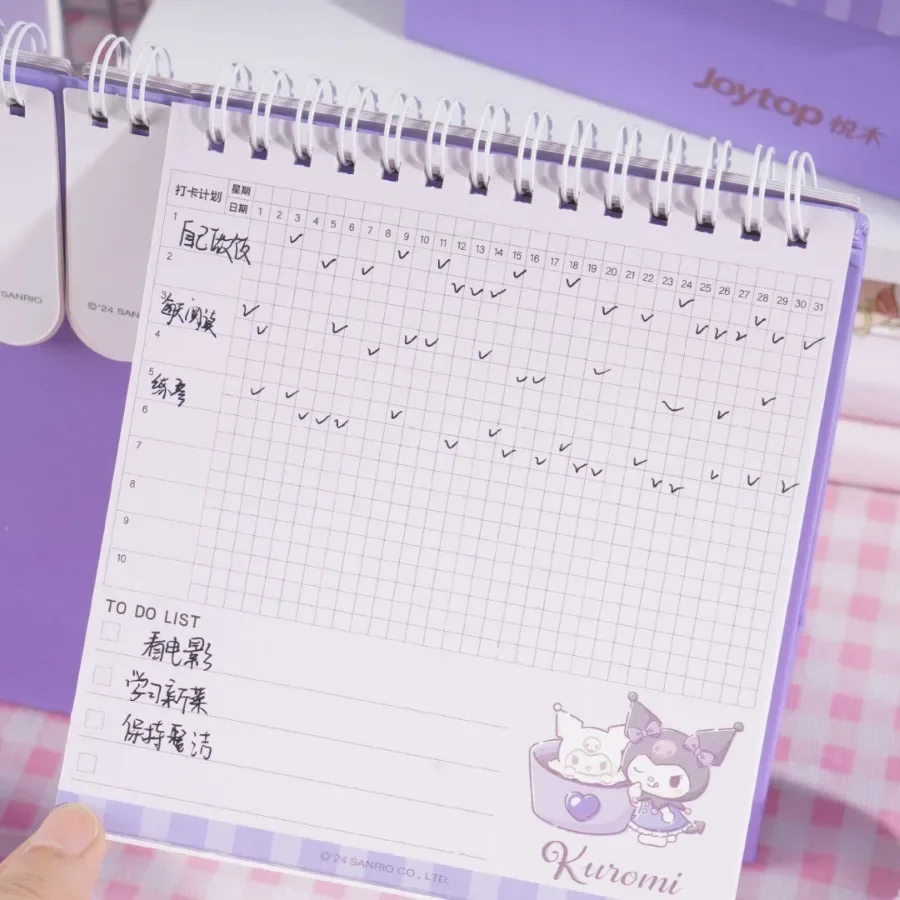 Joytop 悦木
SANRIO
©'24 SAN
打卡计划
星期
日期 1 2 3 4 5 6 7 8 9 10 11 12 13 14 15 16 17 18 19 20 21 22 23 24 25 26 27 28 29 30 31
1
自己做饭
2
3
每天阅读
4
5
练琴
6
7
8
9
10
TO DO LIST
看电影
学习新菜
保持整洁
Kuromi
©'24 SANRIO CO., LTD.